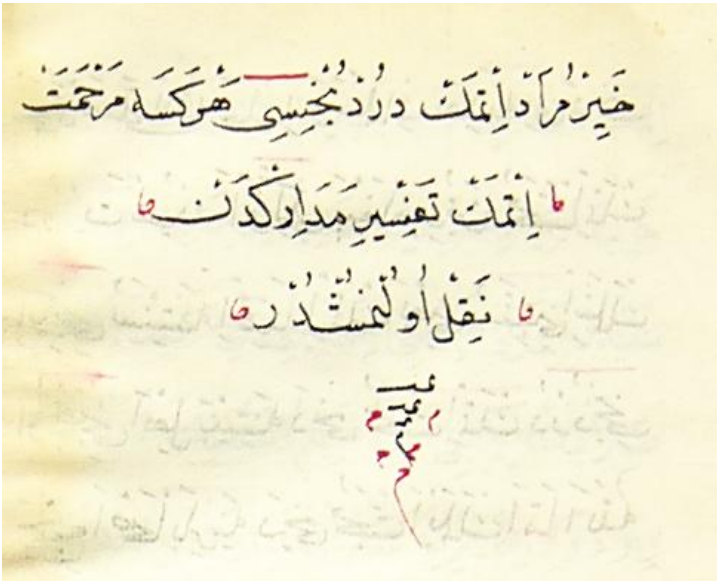 خَيِرْ مُرَادْ اِتْمَكْ دَرْدُنْجِيسِى هَرْكَسَه مَرْحَمَتْ
اِتْمَكْ تَفْسِيرِ مَدَارِكْدَنْ
نَقِلْ اُولُنْمُشْدُرْ